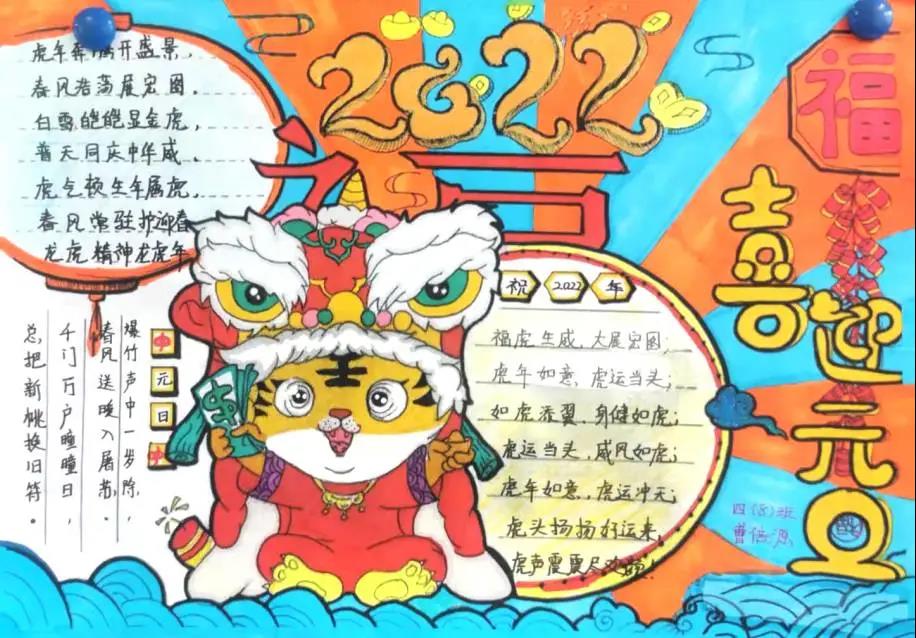 2022
福
喜迎元旦
虎年奔腾开盛景，
春风浩荡展宏图。
白雪皑皑显金虎，
普天同庆中华威。
虎气顿生年属虎，
春风常驻护迎春
龙虎精神龙虎年
中
元
日
中
爆竹声中一岁除，
春风送暖入屠苏。
千门万户曈曈日，
总把新桃换旧符。
$
祝 2022 年
福虎生威，大展宏图；
虎年如意，虎运当头；
如虎添翼，身健如虎；
虎运当头，威风如虎；
虎年如意，虎运冲天；
虎头扬扬好运来，
虎声震震尽欢颜！
四(8)班
曹